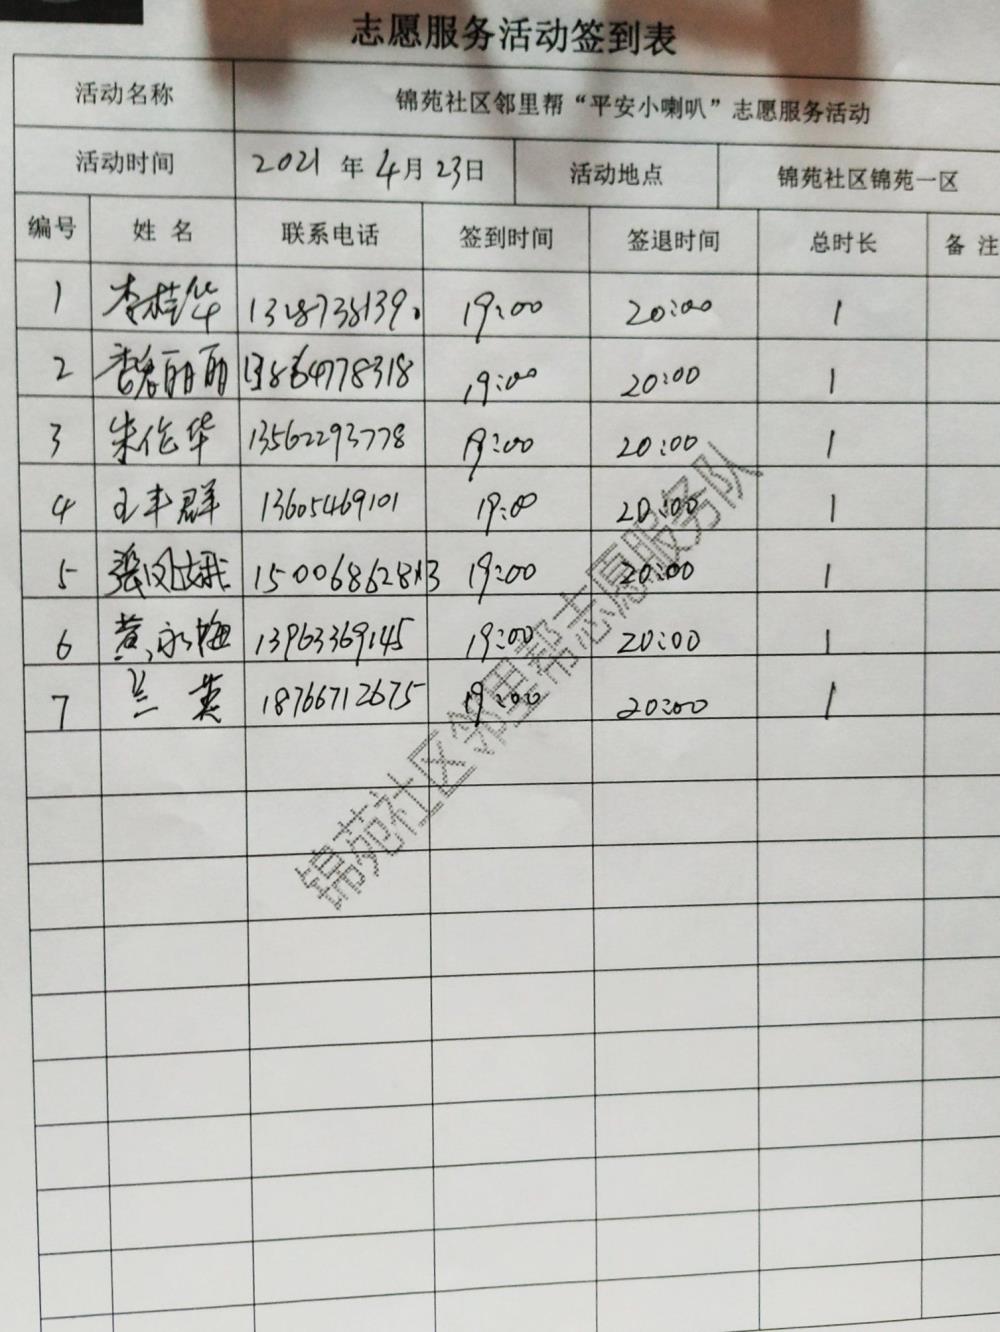 志愿服务活动签到表
活动名称 锦苑社区邻里帮“平安小喇叭”志愿服务活动
活动时间 2021年4月23日 活动地点 锦苑社区锦苑一区
编号 姓名 联系电话 签到时间 签退时间 总时长 备注
1 李桂华 19:00 20:00 1
2 丽丽 19:00 20:00 1
3 朱作华 13562293778 19:00 20:00 1
4 王丰群 13605469101 19:00 20:00 1
5 张凤娥 19:00 20:00 1
6 黄永梅 13963369145 19:00 20:00 1
7 兰英 18766712675 19:00 20:00 1
锦苑社区邻里帮志愿服务队